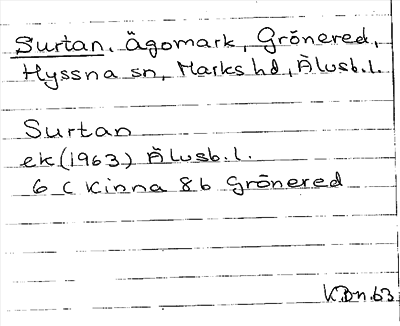 Surtan. Ägomark, Grönered,
Hyssna sn, Marks hd, Älvsb. l.
Surtan
ek (1963) Älvsb. l.
6 C Kinna 8b Grönered
KDn. 63